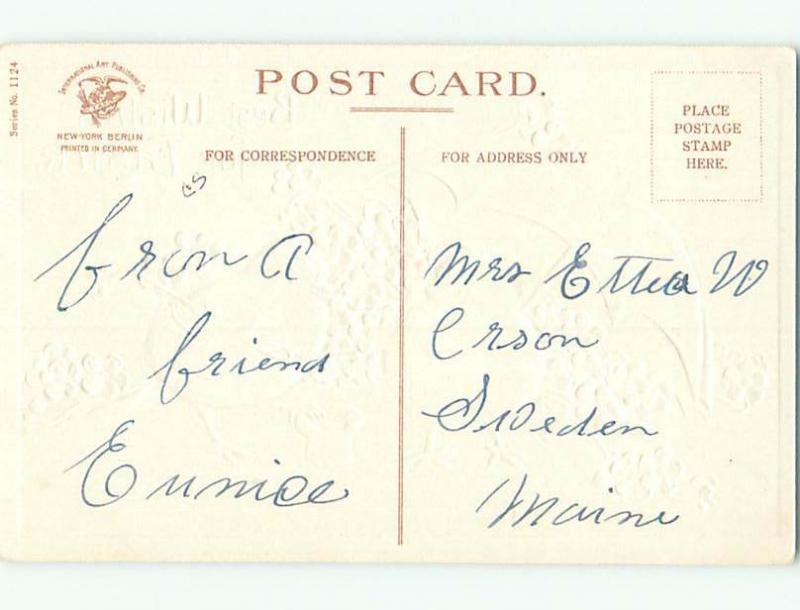 Series No. 1124
INTERNATIONAL ART PUBLISHING Co.
NEW-YORK BERLIN
PRINTED IN GERMANY.
POST CARD.
PLACE
POSTAGE
STAMP
HERE.
FOR CORRESPONDENCE
FOR ADDRESS ONLY
from a
friend
Eunice
Mrs Etta W
Sweden
Maine